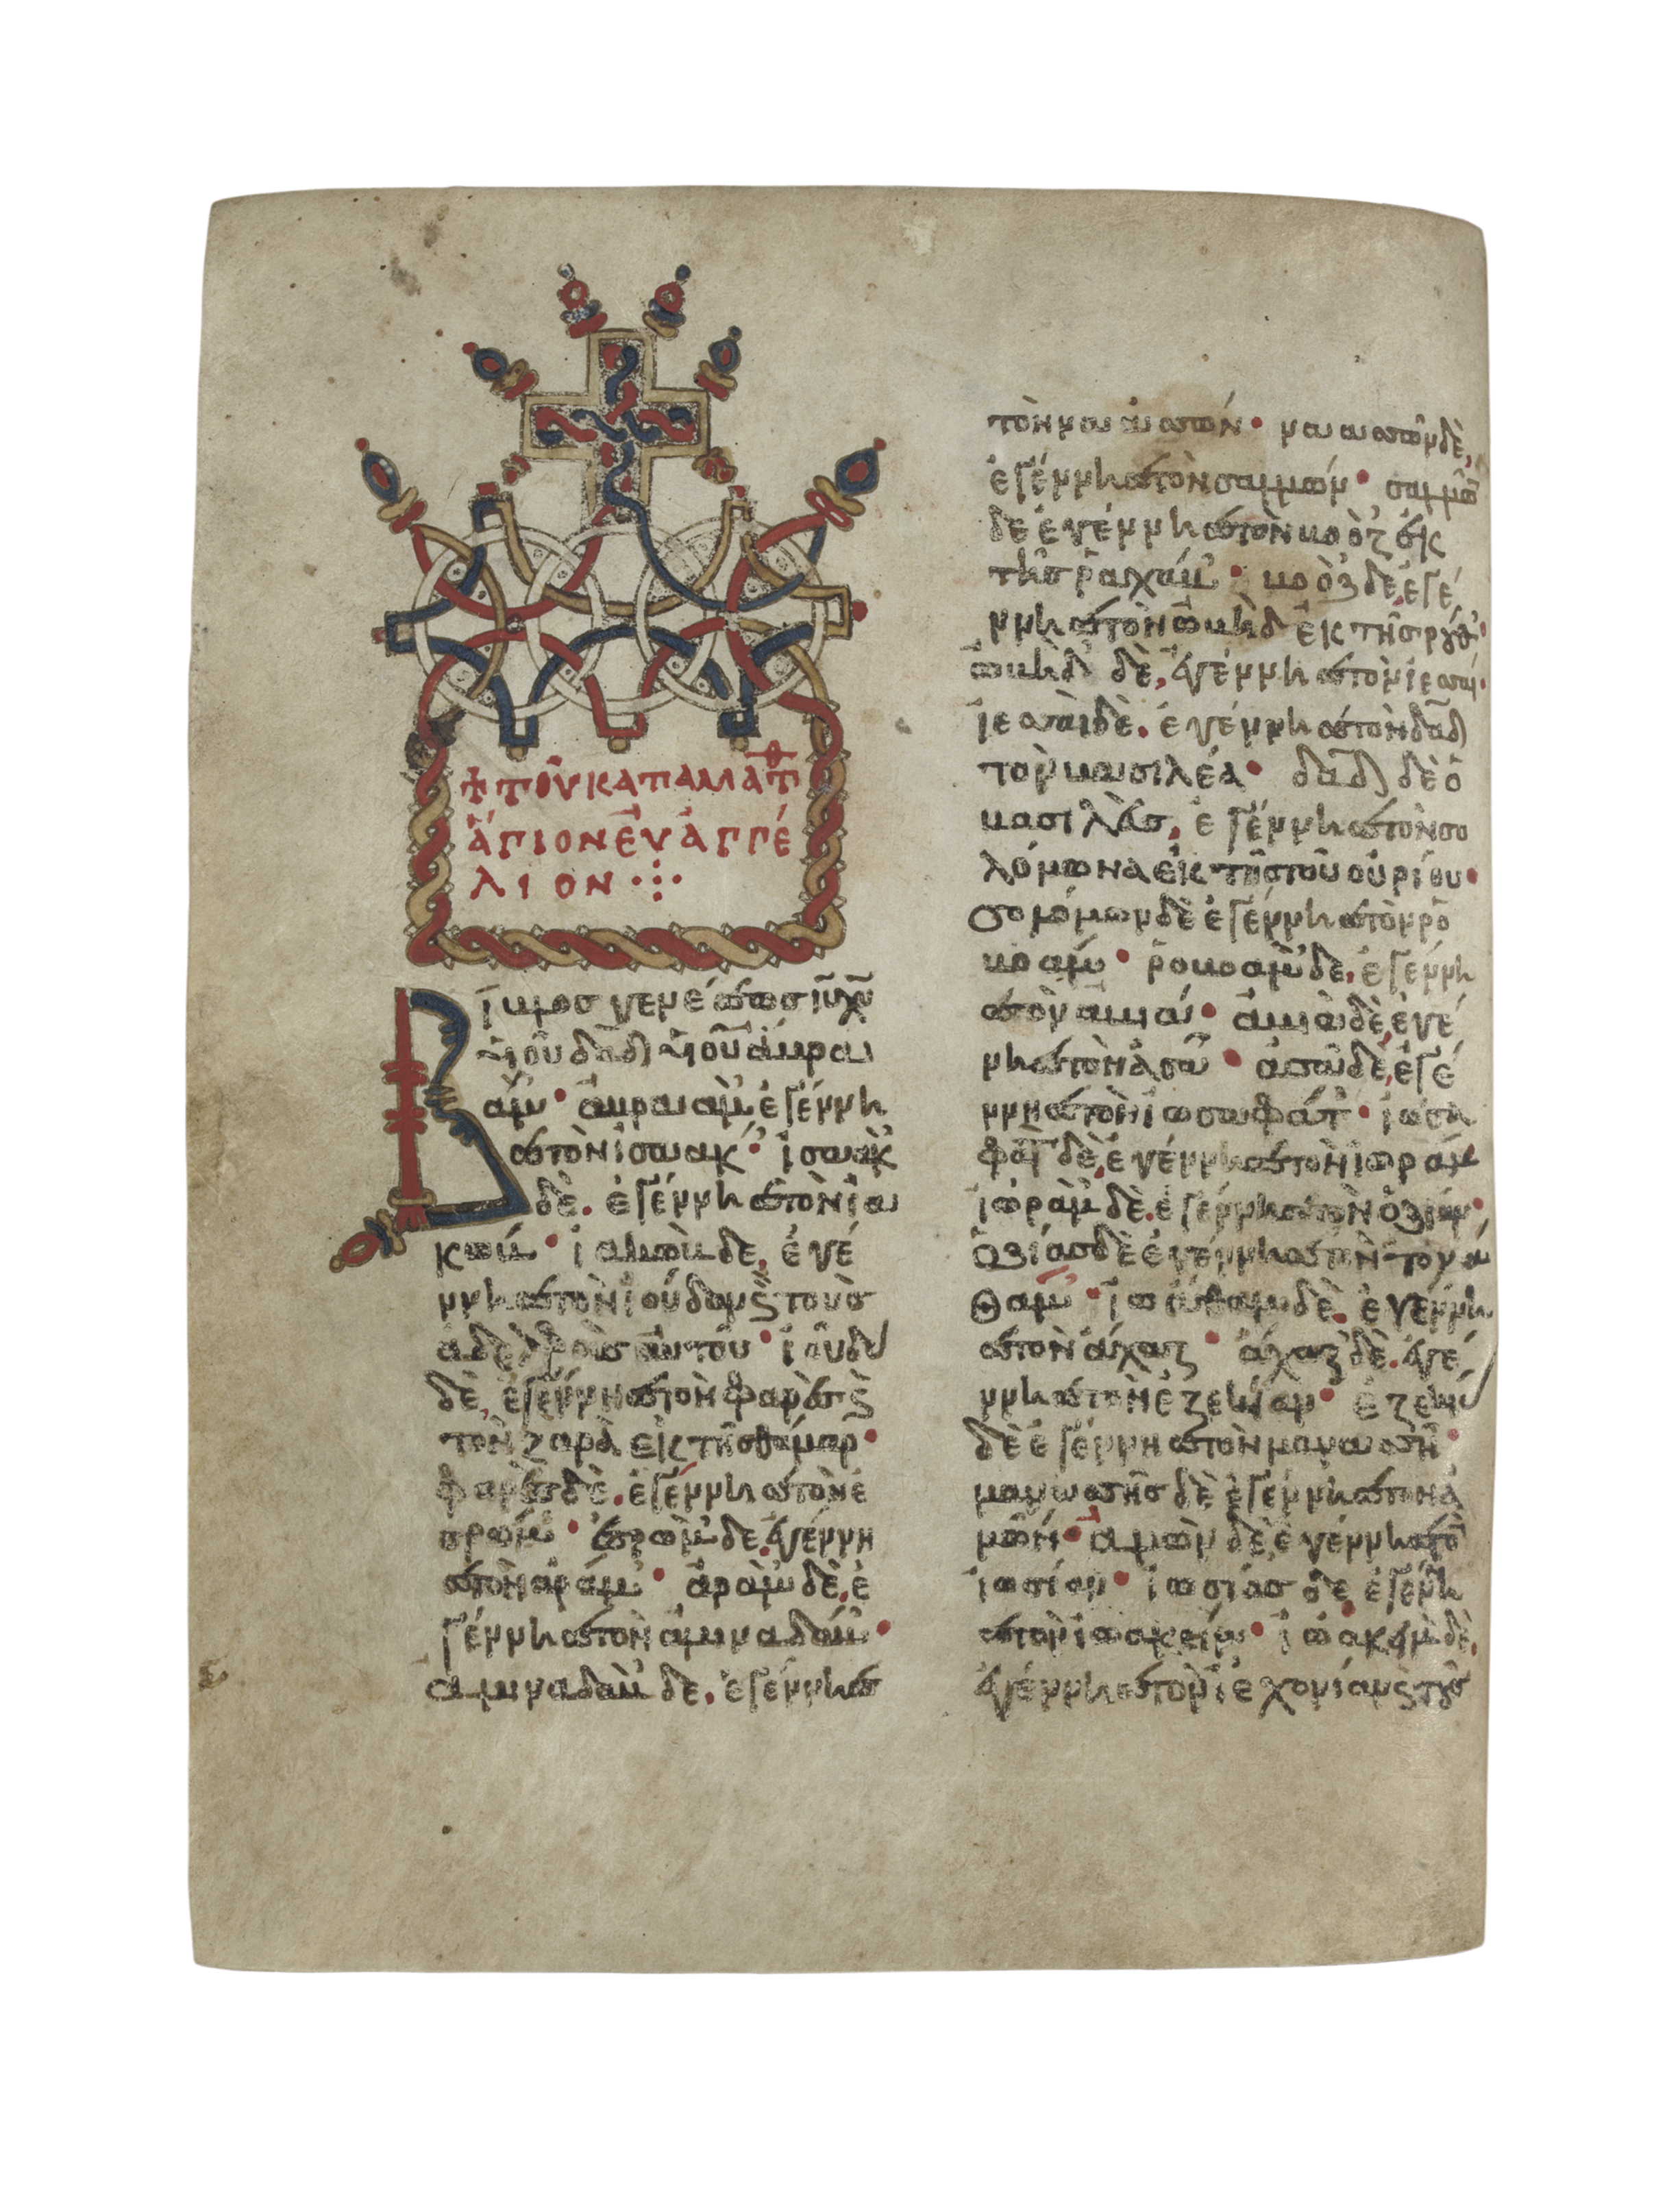 + τοῦ κατα ματθ
ἅγιον εὐαγγέ
λιον
Βίβλοσ γενέσεωσ ἰῦ χῦ
υἱοῦ δαδ υἱοῦ ἀβρα
άμ· ἀβρααμ ἐγέννη
σε τὸν ἰσαακ· ἰσαακ
δὲ. ἐγέννησε τὸν ἰα
κώβ· ἰακὼβ δε, ἐγέ
ννησε τὸν ἰούδαν ϗ τοὺσ
ἀδελφοὺσ αὐτοῦ· ἰούδασ
δὲ, ἐγέννησε τὸν φαρὲσ ϗ
τὸν ζαρὰ ἐκ τῆσ θάμαρ·
φαρὲσ δὲ. ἐγέννησε τὸν ἐ
σρώμ· ἐσρὼμ δε. ἐγέννη
σε τὸν ἀράμ· ἀρὰμ δὲ, ἐ
γέννησε τὸν ἀμιναδάμ·
ἀμιναδὰμ δε. ἐγέννησε
τὸν ναασσών· ναασσὼν δὲ,
ἐγέννησε τὸν σαλμών· σαλμὼ
δε ἐγέννησε τὸν βοὸζ ἐκ
τῆσ ῥαχάβ· βοὸζ δε, ἐγέ
ννησε τὸν ὠβὴδ ἐκ τῆσ ρούθ·
ὠβὴδ δὲ, ἐγέννησε τὸν ἰεσσαί·
ἰεσσαὶ δὲ. ἐγέννησε τὸν δαδ
τὸν βασιλέα· δαδ δὲ ὁ
βασιλεὺσ, ἐγέννησε τὸν σο
λόμωνα ἐκ τῆσ τοῦ οὐρίου·
σολόμων δὲ ἐγέννησε τὸν ρο
βοαμ· ῥοβοὰμ δε, ἐγέννη
σε τὸν ἀβιά· ἀβιὰ δὲ, ἐγέ
νησε τὸν ἀσά· ἀσὰ δὲ, ἐγέ
ννησε τὸν ἰωσαφάτ· ἰωσα
φὰτ δὲ, ἐγέννησε τὸν ἰωράμ
ἰωρὰμ δὲ. ἐγέννησε τὸν ὀζίαν·
ὀζίασ δὲ ἐγέννησε τὸν ἰωά
θαμ· ἰωάθαμ δὲ. ἐγέννη
σε τὸν ἄχαζ· ἄχαζ δὲ. ἐγέ
ννησε τὸν ἐζεκίαν· ἐζεκίασ
δὲ ἐγέννησε τὸν μανασσῆ·
μανασσῆσ δὲ ἐγέννησε τὸν ἀ
μών· ἀμὼν δὲ, ἐγέννησε τὸ
ἰωσίαν· ἰωσίασ δε, ἐγέννη
σε τὸν ἰωακείμ· ἰωακὴμ δὲ,
ἐγέννησε τὸν ἰεχονίαν ϗ τοὺσ